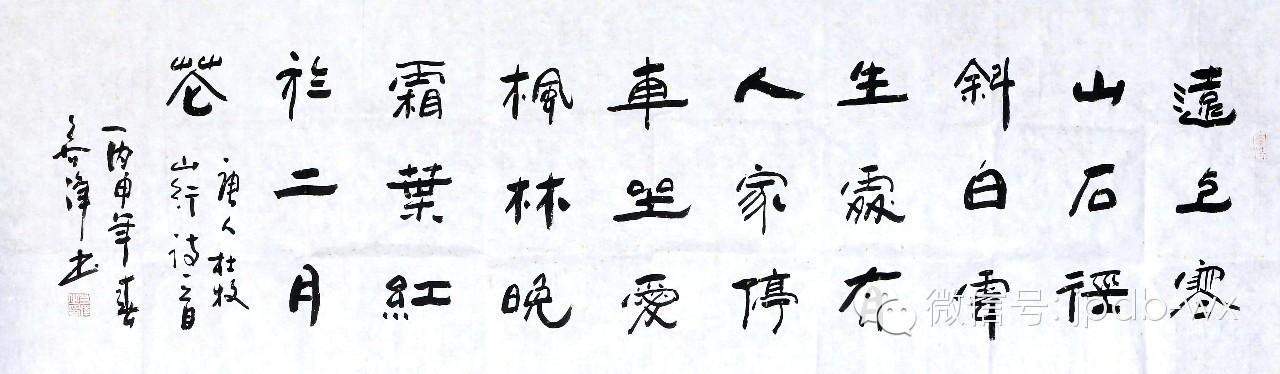 遠上寒
山石徑
斜白雲
生處有
人家停
車坐愛
楓林晚
霜葉紅
於二月
花
唐人杜牧
山行詩一首
丙申年春
澤书
微信号: jpdb-wx